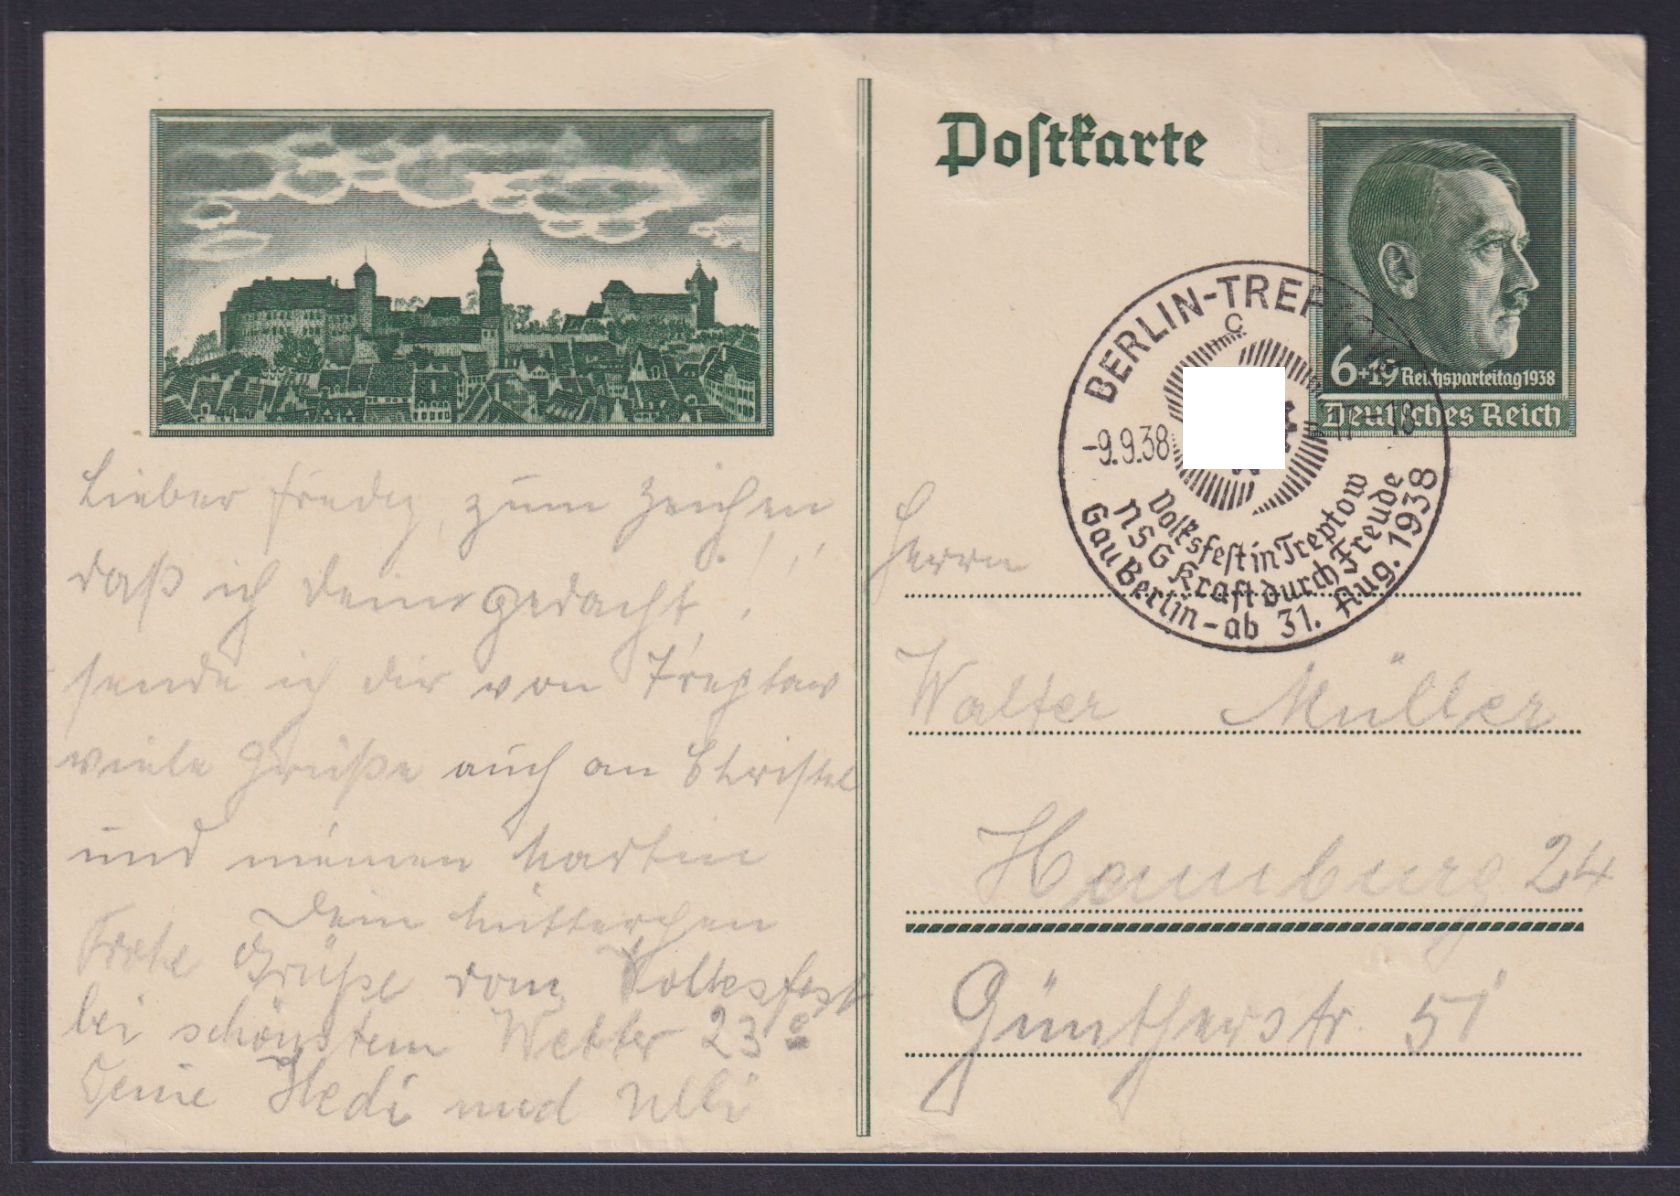 Postkarte
6+19 Reichsparteitag 1938
Deutsches Reich
BERLIN-TREP
C
-9.9.38
-18
Volksfest in Treptow
NSG Kraft durch Freude
Gau Berlin - ab 31. Aug. 1938
Lieber Fredy, zum Zeichen,
daß ich Deiner gedacht!
sende ich dir von Treptow
viele Grüße auch an Christel
und meinen Martin
Dein Mütterchen
Frohe Grüße vom Volksfest
bei schönstem Wetter 23°
Deine Hedi und Ulli
Herrn
Walter Müller
Hamburg 24
Güntherstr. 51